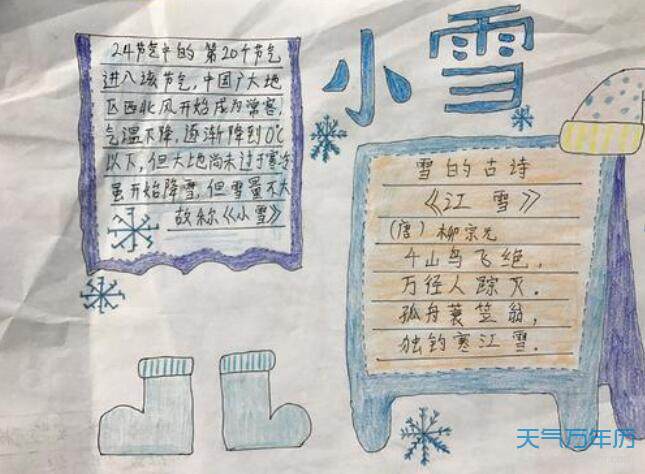 小雪
24节气中的第20个节气
进入该节气,中国广大地
区西北风开始成为常客,
气温下降,逐渐降到0℃
以下,但大地尚未过于寒冷
虽开始降雪,但雪量不大
故称《小雪》
雪的古诗
《江雪》
(唐)柳宗元
千山鸟飞绝,
万径人踪灭.
孤舟蓑笠翁,
独钓寒江雪.
天气万年历